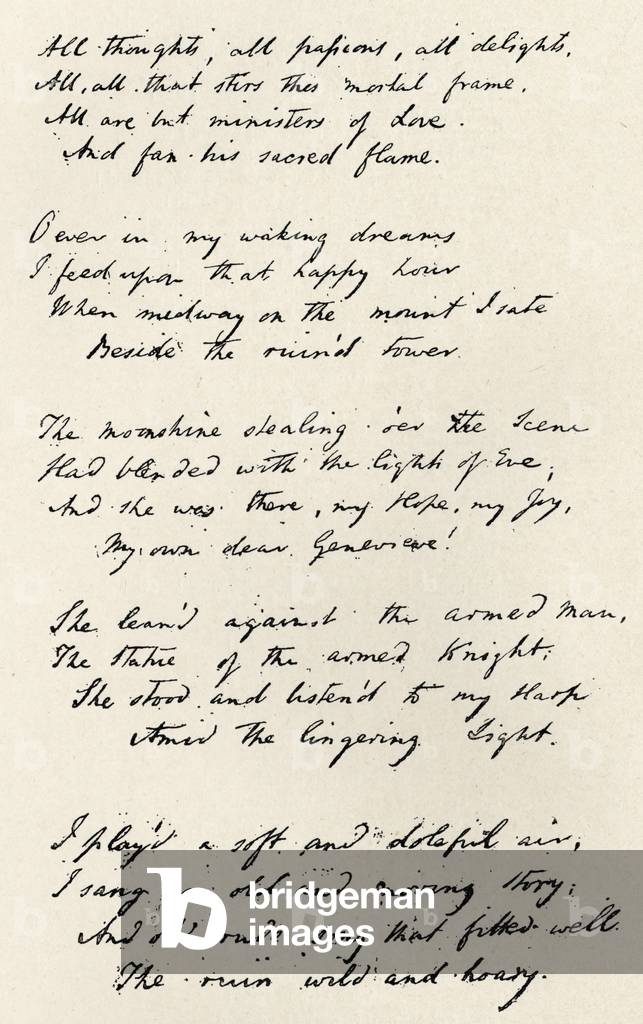 All thoughts, all passions, all delights,
All, all that stirs this mortal frame,
All are but ministers of Love.
And fan his sacred flame.
O ever in my waking dreams
I feed upon that happy hour
When midway on the mount I sate
Beside the ruin'd Tower.
The moonshine stealing o'er the Scene
Had blended with the lights of Eve,
And she was there, my Hope, my Joy,
My own dear Genevieve!
She lean'd against the armed Man,
The Statue of the armed Knight;
She stood and listen'd to my Harp
Amid the lingering Light.
I play'd a soft and doleful air,
I sang an old and moving Story;
An old rude song that fitted well
The ruin wild and hoary.
bridgeman
images